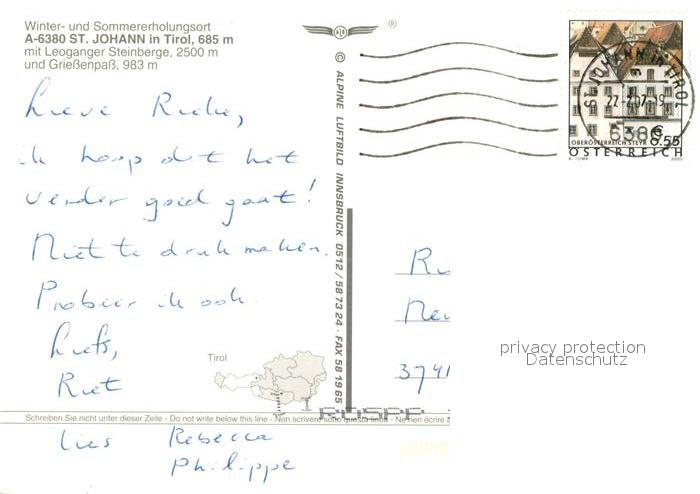 Winter- und Sommererholungsort
A-6380 ST. JOHANN in Tirol, 685 m
mit Leoganger Steinberge, 2500 m
und Grießenpaß, 983 m
®
© ALPINE LUFTBILD INNSBRUCK 0512 / 58 73 24 · FAX 58 49 65
ST. JOHANN IN TIROL
6380
OBERÖSTERREICH STEYR
€ 0.55
ÖSTERREICH
Lieve
ik hoop dat het
verder goed gaat!
Niet te druk maken.
Probeer ik ook.
Liefs,
Riet
Lies Rebecca
Philippe
privacy protection
Datenschutz
Tirol
Schreiben Sie nicht unter dieser Zeile - Do not write below this line - Non scrivere sotto questa linea - Ne rien écrire